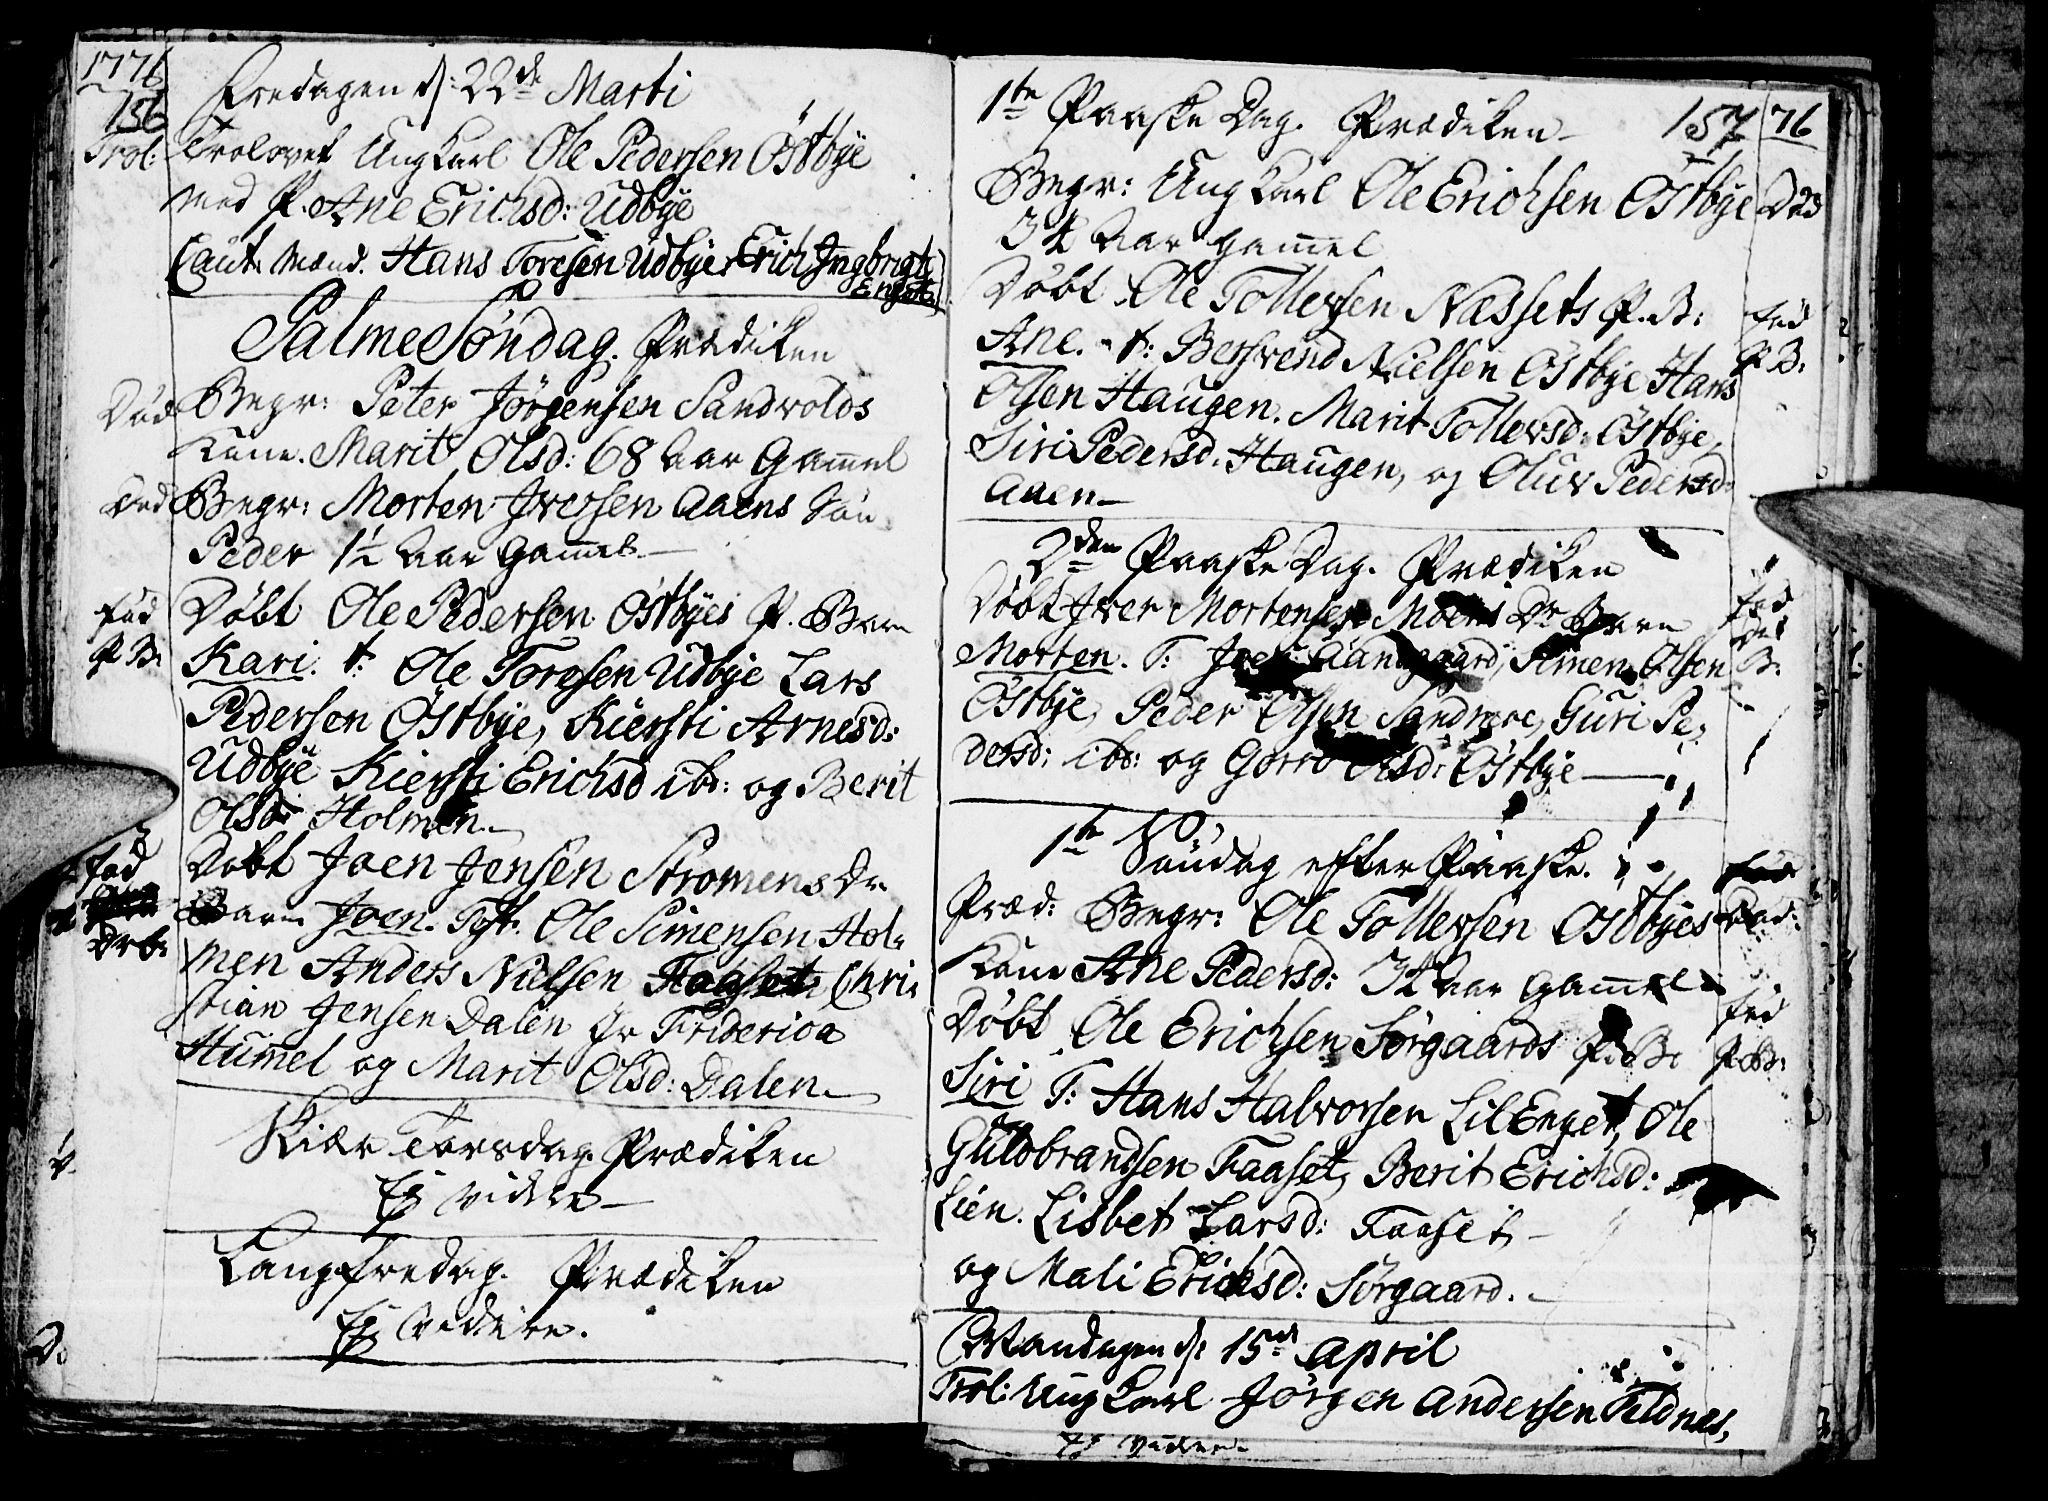 1776
156
Fredagen d: 22de Marti
Trol: Trolovet Ung Karl Ole Pedersen Östbÿe
med P. Ane Erichsd: Udbÿe
Caut: Mænd. Hans Toresen Udbÿe, Erich Ingbrigts
Enget
Palme Söndag. Prædiken
Död Begr: Peter Jörgensen Sandvolds
Kone. Marit Olsd: 68 Aar Gammel
Död Begr: Morten Iversen Aaens Sön
Peder 1½ Aar Gammel.
föd Döbt Ole Pedersen Östbÿes P. Barn
P. B: Kari. t: Ole Toresen Udbÿe Lars
Pedersen Östbÿe, Kiersti Arnesd:
Udbÿe Kiersti Erichsd ibd: og Berit
Olsd: Holmen.
föd Döbt Joen Jensen Stromens Dr.
Drb: Barn Joen. Test. Ole Simensen Hol-
men Anders Nielsen Faaset, Chri-
stian Jensen Dalen Jr Friderica
Hummel og Marit Olsd: Dalen.
Skiær Torsdag. Prædiken
Ej videre
Langfredag. Prædiken
Ej videre.
1te Paaske Dag. Prædiken 157 76
Begr: Ung Karl Ole Erichsen Östbÿe Död
34 Aar Gammel
Döbt Ole Tollevsen Næssets P. B: föd
Ane. t: Berfvend Nielsen Östbÿe Hans P. B:
Olsen Haugen. Marit Tollevsd: Östbÿe,
Siri Pedersd: Haugen, og Oluv Pedersd:
Aaen
2den Paaske Dag. Prædiken
Döbt Iver Mortensen Moens Dr Barn föd
Morten. T: Aandgaard, Simen Olsen Dr B:
Östbÿe, Peder Olsen Sandmoe, Guri Pe-
dersd: ibd: og Gorro Olsd: Östbÿe
1te Söndag efter Paaske.
Præd: Begr: Ole Tollevsen Östbÿes Död:
Kone Ane Pedersd: 34 Aar Gammel
Döbt Ole Erichsen Sörgaards P. B: föd P. B:
Siri T: Hans Halvorsen LilEnget, Ole
Guldbrandsen Faaset, Berit Erichsd:
Lien. Lisbet Larsd: Faaset
og Mali Erichsd: Sörgaard.
Mandagen d: 15de April
Trol: Ung Karl Jörgen Andersen Kildnes,